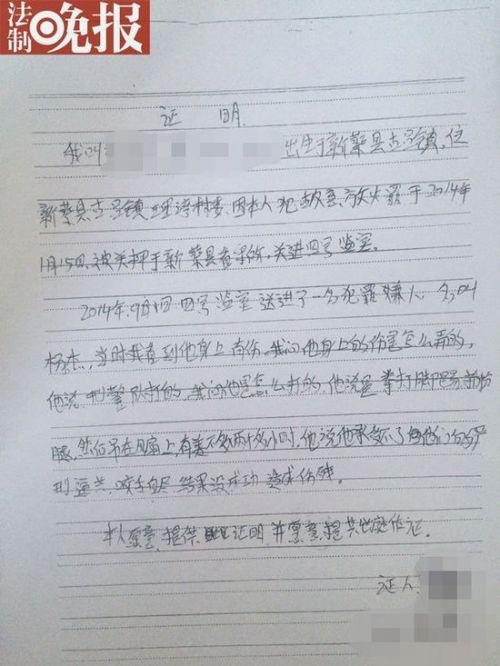 法制晚报
证 明
我叫 出生于新蔡县古吕镇,住
新蔡县古吕镇 因本人犯 放火罪于2014年
1月15日被关押于新蔡县看守所,关进四号监室。
2014年9月 四号监室送进了一名犯罪嫌人 名叫
杨杰,当时我看到他身上有伤。我问他身上的伤是怎么弄的,
他说刑警队打的,我问他是怎么打的,他说是拳打脚踢
腿,然后吊在 上,有差不多两个多小时,他说他承受不了
刑逼供,咬舌自尽 结果没成功 造成伤残。
本人愿意提供 证明 并愿意提共出庭作证。
证人